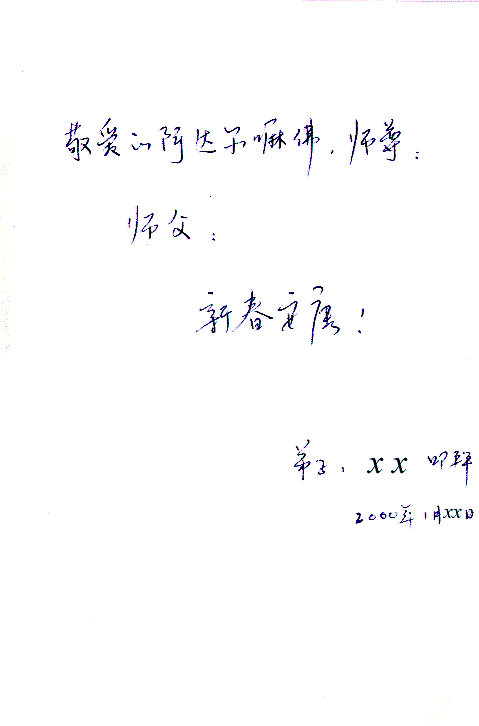 敬爱的阿达尔嘛佛、师尊：
师父：
新春安康！
弟子：xx 叩拜
2000年1月xx日